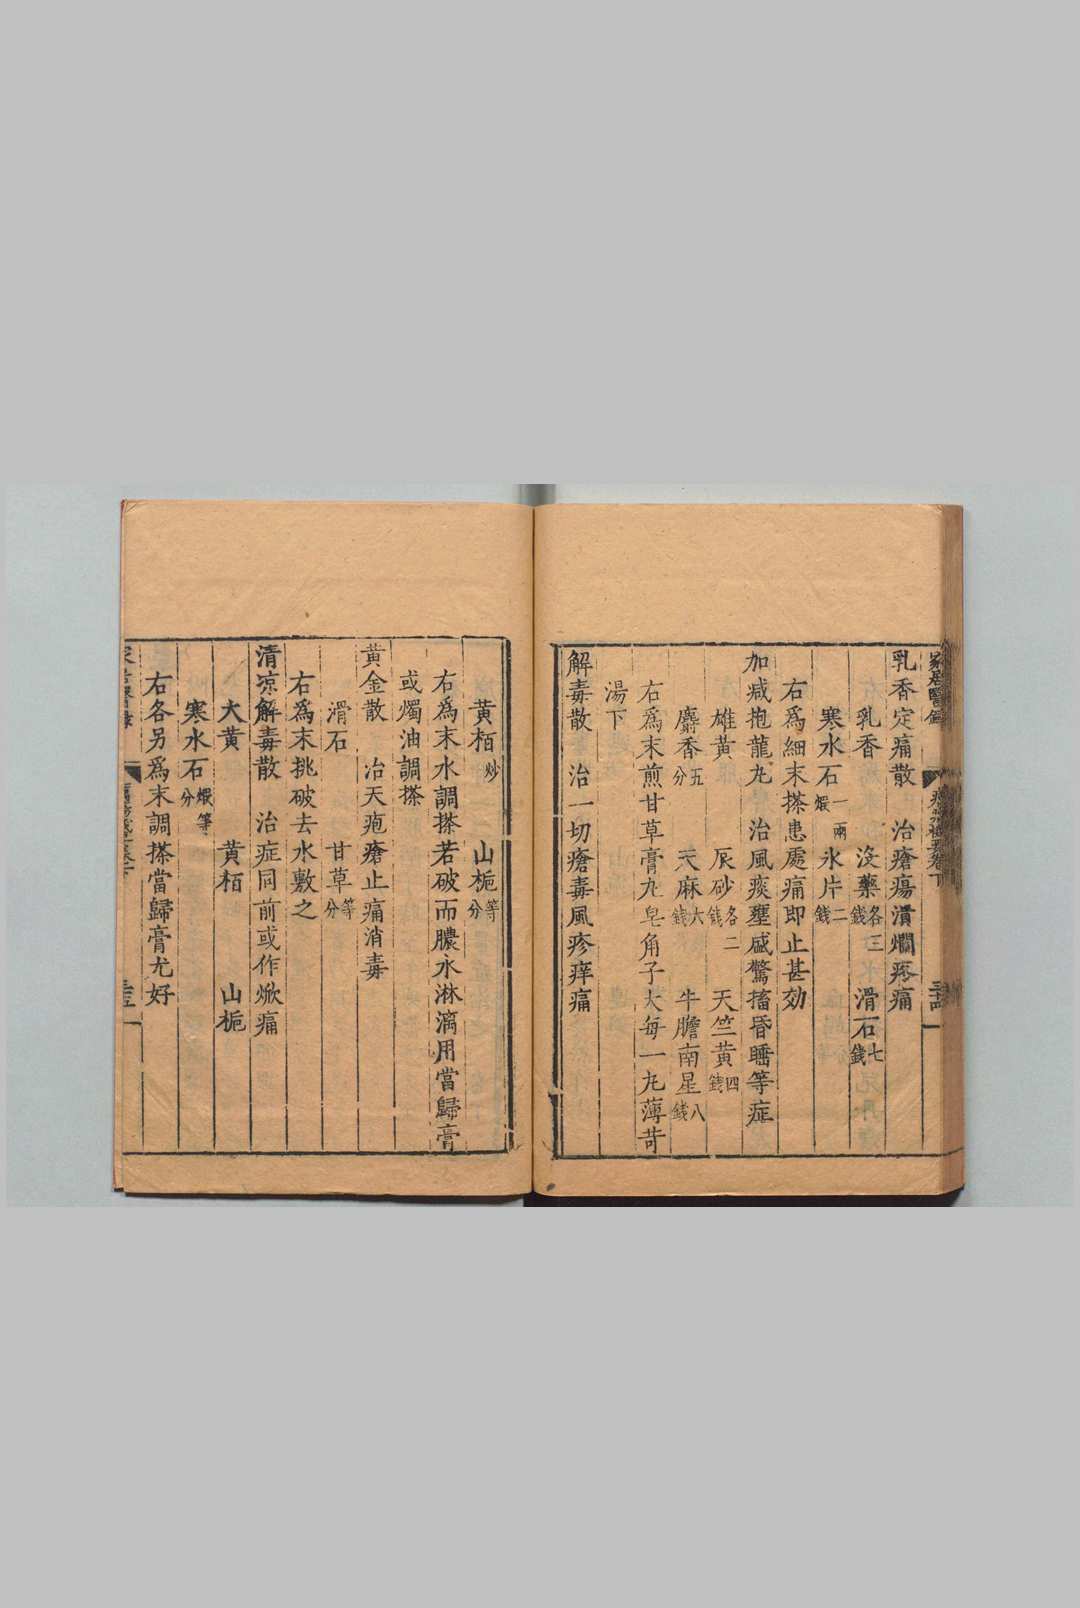 乳香定痛散　治瘡瘍潰爛疼痛
乳香　没藥各三錢　滑石七錢
寒水石煅一兩　氷片二錢
右爲細末搽患處痛即止甚効
加减抱龍丸　治風痰壅盛驚搐昏睡等症
雄黄　辰砂各二錢　天竺黄四錢
麝香五分　天麻六錢　牛膽南星八錢
右爲末煎甘草膏丸皂角子大每一丸薄荷
湯下
解毒散　治一切瘡毒風疹痒痛
黄栢炒　山梔等分
右爲末水調搽若破而膿水淋漓用當歸膏
或燭油調搽
黄金散　治天疱瘡止痛消毒
滑石　甘草等分
右爲末挑破去水敷之
清凉解毒散　治症同前或作焮痛
大黄　黄栢　山梔
寒水石煅等分
右各另爲末調搽當歸膏尤好